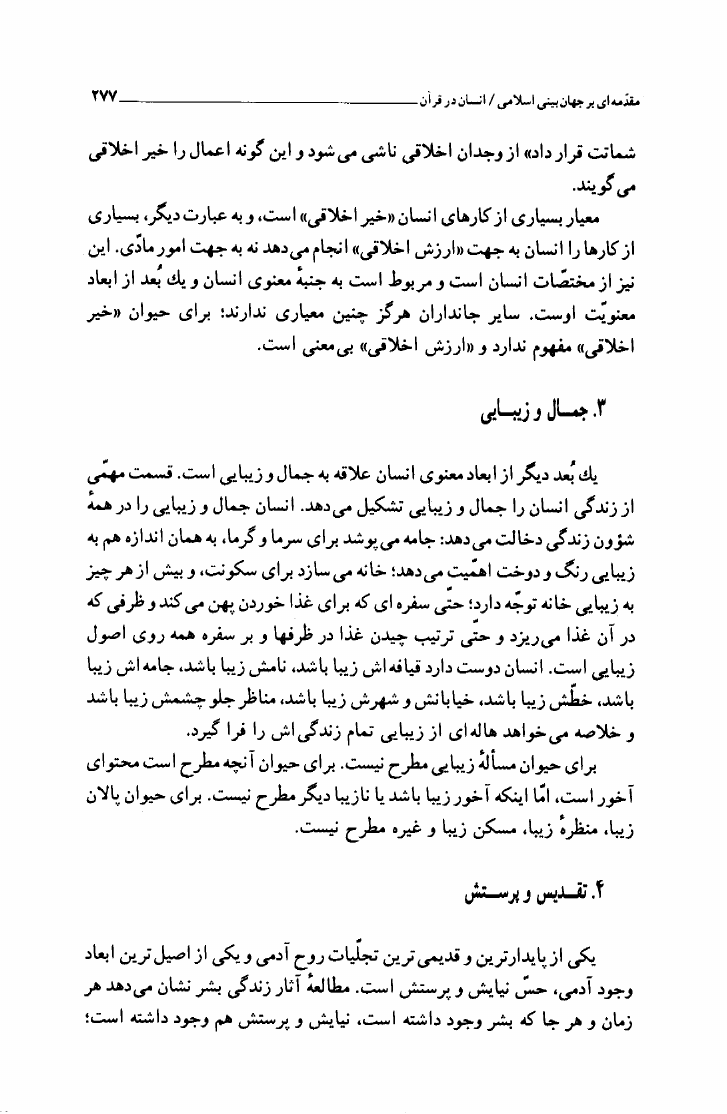 مقدّمه‌ای بر جهان‌بینی اسلامی / انسان در قرآن ۲۷۷
شماتت قرار داد» از وجدان اخلاقی ناشی می‌شود و این گونه اعمال را خیر اخلاقی
می‌گویند.
معیار بسیاری از کارهای انسان «خیر اخلاقی» است، و به عبارت دیگر، بسیاری
از کارها را انسان به جهت «ارزش اخلاقی» انجام می‌دهد نه به جهت امور مادّی. این
نیز از مختصّات انسان است و مربوط است به جنبهٔ معنوی انسان و یك بُعد از ابعاد
معنویّت اوست. سایر جانداران هرگز چنین معیاری ندارند؛ برای حیوان «خیر
اخلاقی» مفهوم ندارد و «ارزش اخلاقی» بی‌معنی است.
۳. جمـال و زیبـایی
یك بُعد دیگر از ابعاد معنوی انسان علاقه به جمال و زیبایی است. قسمت مهمّی
از زندگی انسان را جمال و زیبایی تشکیل می‌دهد. انسان جمال و زیبایی را در همهٔ
شؤون زندگی دخالت می‌دهد: جامه می‌پوشد برای سرما و گرما، به همان اندازه هم به
زیبایی رنگ و دوخت اهمّیت می‌دهد؛ خانه می‌سازد برای سکونت، و بیش از هر چیز
به زیبایی خانه توجّه دارد؛ حتّی سفره‌ای که برای غذا خوردن پهن می‌کند و ظرفی که
در آن غذا می‌ریزد و حتّی ترتیب چیدن غذا در ظرفها و بر سفره همه روی اصول
زیبایی است. انسان دوست دارد قیافه‌اش زیبا باشد، نامش زیبا باشد، جامه‌اش زیبا
باشد، خطّش زیبا باشد، خیابانش و شهرش زیبا باشد، مناظر جلو چشمش زیبا باشد
و خلاصه می‌خواهد هاله‌ای از زیبایی تمام زندگی‌اش را فرا گیرد.
برای حیوان مسألهٔ زیبایی مطرح نیست. برای حیوان آنچه مطرح است محتوای
آخور است، امّا اینکه آخور زیبا باشد یا نازیبا دیگر مطرح نیست. برای حیوان پالان
زیبا، منظرهٔ زیبا، مسکن زیبا و غیره مطرح نیست.
۴. تقـدیس و پرسـتش
یکی از پایدارترین و قدیمی‌ترین تجلّیات روح آدمی و یکی از اصیل‌ترین ابعاد
وجود آدمی، حسّ نیایش و پرستش است. مطالعهٔ آثار زندگی بشر نشان می‌دهد هر
زمان و هر جا که بشر وجود داشته است، نیایش و پرستش هم وجود داشته است؛